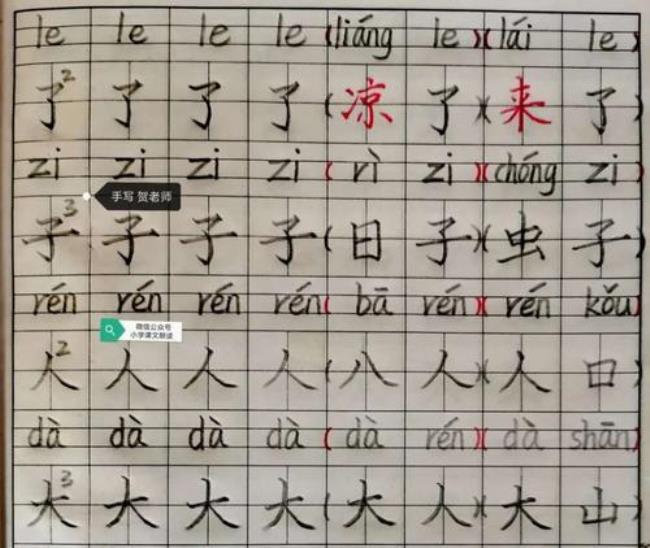 le le le le (liáng le)(lái le)
了2 了 了 了(凉 了)(来 了)
zi zi zi zi (rì zi)(chóng zi)
手写 贺老师
子3 子 子 子(日 子)(虫 子)
rén rén rén rén( bā rén)( rén kǒu)
微信公众号
小学课文朗读
人2 人 人 人(八 人)(人 口)
dà dà dà dà ( dà rén)( dà shān)
大3 大 大 大(大 人)(大 山)